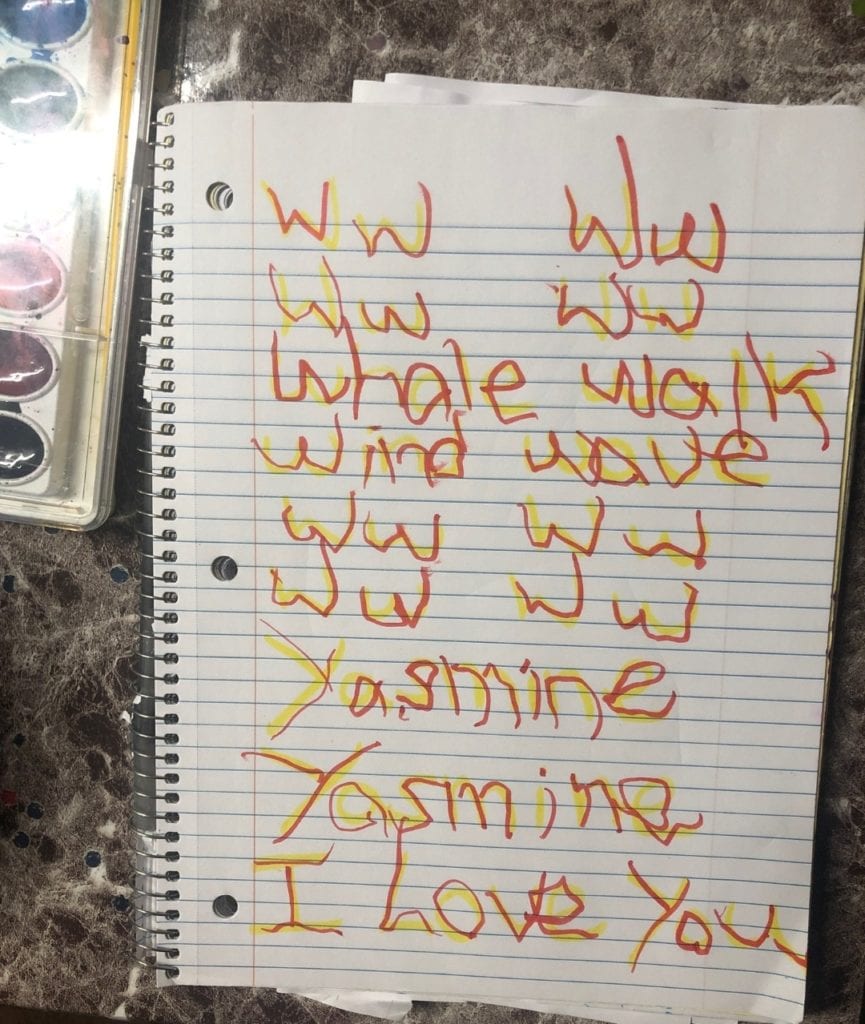 Ww Ww
Ww Ww
Whale walk
Wind wave
Ww Ww
Ww Ww
Yasmine
Yasmine
I Love You